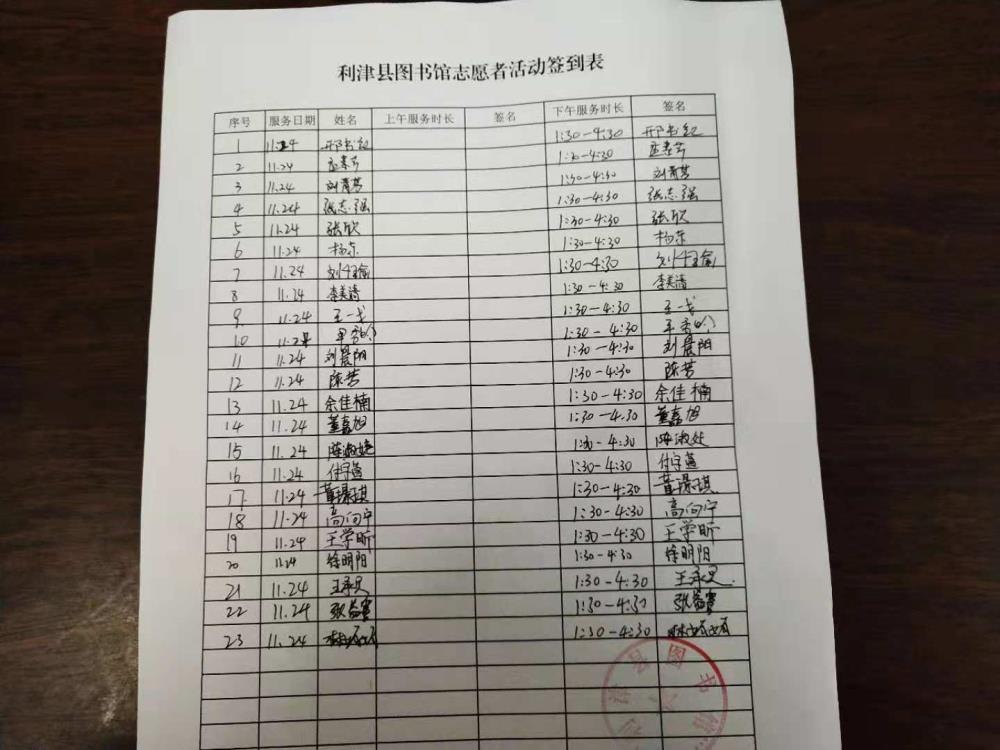 利津县图书馆志愿者活动签到表
序号 服务日期 姓名 上午服务时长 签名 下午服务时长 签名
1 11.24 邢书记 1:30-4:30 邢书记
2 11.24 1:30-4:30
3 11.24 刘菁芸 1:30-4:30 刘菁芸
4 11.24 张志强 1:30-4:30 张志强
5 11.24 张欣 1:30-4:30 张欣
6 11.24 杨东 1:30-4:30 杨东
7 11.24 1:30-4:30
8 11.24 李美清 1:30-4:30 李美清
9. 11.24 王一戈 1:30-4:30 王一戈
10 11.24 1:30-4:30
11 11.24 刘晨阳 1:30-4:30 刘晨阳
12 11.24 陈芳 1:30-4:30 陈芳
13 11.24 余佳楠 1:30-4:30 余佳楠
14 11.24 董嘉旭 1:30-4:30 董嘉旭
15 11.24 陈淑婕 1:30-4:30
16 11.24 付宇萱 1:30-4:30 付宇萱
17 11.24 1:30-4:30
18 11.24 高向宁 1:30-4:30 高向宁
19 11.24 王学昕 1:30-4:30 王学昕
20 11.24 徐明阳 1:30-4:30 徐明阳
21 11.24 王承灵 1:30-4:30 王承灵
22 11.24 1:30-4:30
23 11.24 1:30-4:30
津县图书馆